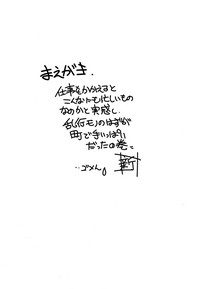 まえがき.
仕事をかかえると
こんなにも忙しいもの
なのかと実感し.
乱何モノのはずが
町で手いっぱい
だったの巻。
…ゴメん。